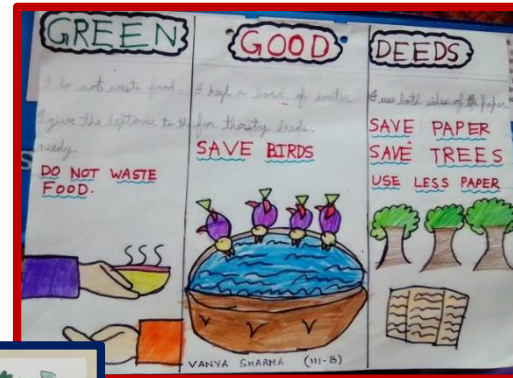 GREEN
I do not waste food.
I give the leftover to the
needy.
DO NOT WASTE
FOOD.
GOOD
I keep a bowl of water
for thirsty birds.
SAVE BIRDS
DEEDS
I use both sides of the paper
SAVE PAPER
SAVE TREES
USE LESS PAPER
VANYA SHARMA (III-B)